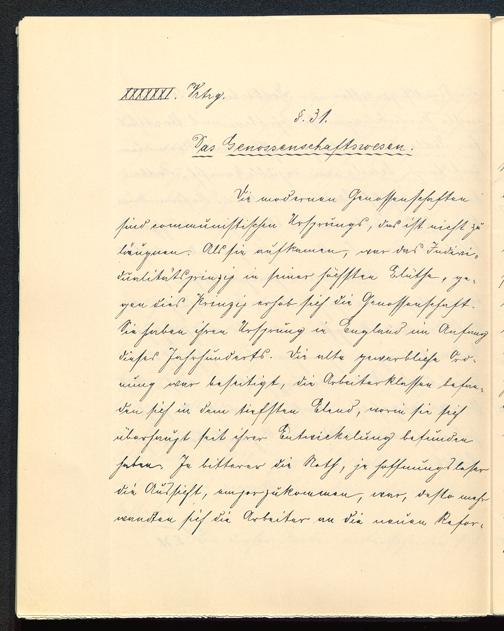 XXXXXXI. Vtrg.
§. 31.
Das Genossenschaftswesen.
Die modernen Genossenschaften
sind communistischen Ursprungs, das ist nicht zu
läugnen. Als sie aufkamen, war das Indivi-
dualitätsprinzip in seiner höchsten Blüthe, ge-
gen dies Prinzip erhob sich die Genossenschaft.
Sie haben ihren Ursprung in England im Anfang
dieses Jahrhunderts. Die alte gewerbliche Ord-
nung war beseitigt, die Arbeiterklassen befan-
den sich in dem tiefsten Elend, worin sie sich
überhaupt seit ihrer Entwickelung befunden
haben. Je bitterer die Noth, je hoffnungsloser
die Aussicht, emporzukommen, war, desto mehr
wandten sich die Arbeiter an die neuen Refor-